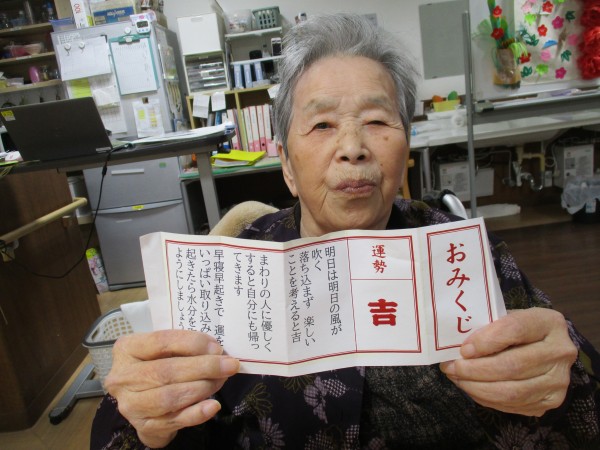 おみくじ
運勢
吉
明日は明日の風が
吹く
落ち込まず 楽しい
ことを考えると吉
まわりの人に優しく
すると自分にも帰っ
てきます
早寝早起きで 運を
いっぱい取り込み
起きたら水分を
ようにしましょう